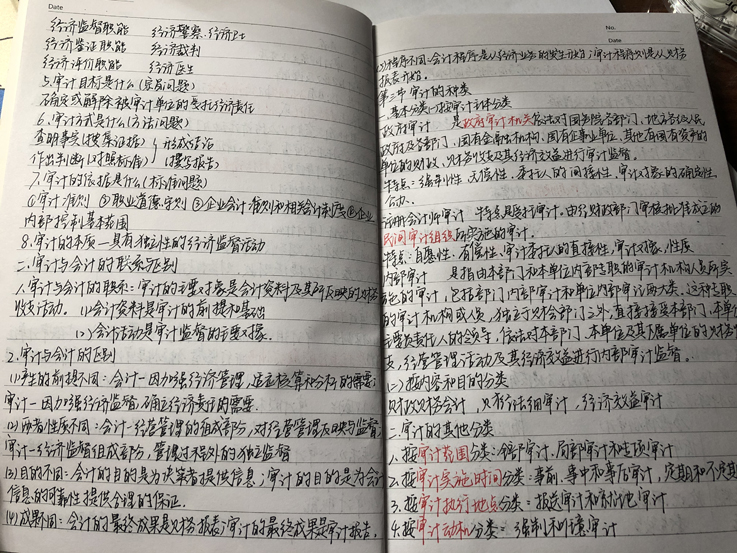 Date
经济监督职能 经济警察、经济卫士
经济鉴证职能 经济裁判
经济评价职能 经济医生
5.审计目标是什么(实质问题)
确定或解除被审计单位的受托经济责任
6.审计方式是什么(方法问题)
查明事实(搜集证据) 形成结论
作出判断(对照标准) (撰写报告)
7.审计的依据是什么(标准问题)
①审计准则 ②职业道德守则 ③企业会计准则和相关会计制度 ④企业
内部控制基本规范
8.审计的本质—具有独立性的经济监督活动
二、审计与会计的联系与区别
1.审计与会计的联系:审计的主要对象是会计资料及其所反映的财务
收支活动。(1)会计资料是审计的前提和基础
(2)会计活动是审计监督的主要对象。
2.审计与会计的区别
(1)产生的前提不同:会计—因加强经济管理,适应核算和分析的需要;
审计—因加强经济监督,确定经济责任的需要.
(2)两者性质不同:会计—经营管理的组成部分,对经营管理反映与监督;
审计—经济监督组成部分,管理过程外的独立监督
(3)目的不同:会计的目的是为决策者提供信息;审计的目的是为会计
信息的可靠性提供合理的保证.
(4)成果不同:会计的最终成果是财务报表;审计的最终成果是审计报告。
No.
Date
(5)程序不同:会计程序是从经济业务的发生开始;审计程序则是从财务
报表开始。
第二节 审计的种类
一、基本分类 按审计主体分类
政府审计 是政府审计机关依法对国务院各部门、地方各级人民
政府及各部门、国有金融机构、国有企事业单位、其他有国有资产的
单位的财政、财务收支及其经济效益进行审计监督。
特点:强制性、无偿性、委托人的间接性、审计对象的确定性
注册会计师审计 特点是受托审计.由经财政部门审核批准成立的
民间审计组织所实施的审计.
特点:自愿性、有偿性、审计委托人的直接性,审计对象、性质
内部审计 是指由本部门和本单位内部专职的审计机构人员所实
施的审计,包括部门内部审计和单位内部审计两大类.这种专职
的审计机构或人员,独立于财会部门之外,直接接受本部门、本单位
主要负责人的领导,依法对本部门、本单位及其下属单位的财务收
支,经营管理活动及其经济效益进行内部审计监督。
(二)按内容和目的分类
财政财务审计,财经法纪审计,经济效益审计
二、审计的其他分类
1.按审计范围分类:全部审计、局部审计和专项审计
2.按审计实施时间分类:事前、事中和事后审计,定期和不定期
3.按审计执行地点分类:报送审计和就地审计
4.按审计动机分类:强制和任意审计